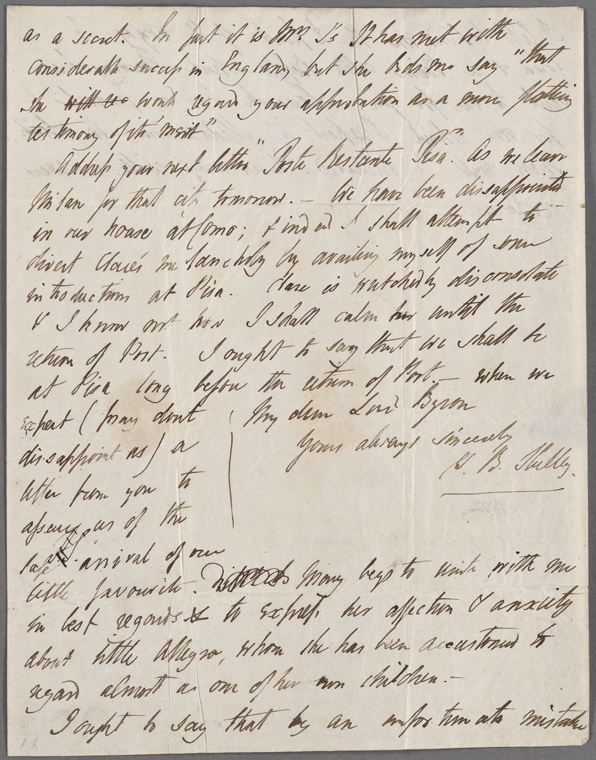 as a secret. In fact it is Mrs. S's It has met with
considerable success in England; but she bids me say "that
she will be would regard your approbation as a more flattering
testimony of its merit"
Address your next letter "Poste Restante Pisa". As we leave
Milan for that city tomorrow. — We have been disappointed
in our house at Como; & indeed I shall attempt to
divert Claire's melancholy by availing myself of some
introductions at Pisa. Clare is wretchedly disconsolate
& I know not how I shall calm her until the
return of Post. I ought to say that we shall be
at Pisa long before the return of Post — when we
expect (pray dont
disappoint us) a
letter from you to
assure us of the
safe arrival of our
My dear Lord Byron
Yours always sincerely
P. B. Shelley.
little favourite. Mary begs to unite with me
in best regards & to express her affection & anxiety
about little Allegra, whom she has been accustomed to
regard almost as one of her own children. —
I ought to say that by an unfortunate mistake